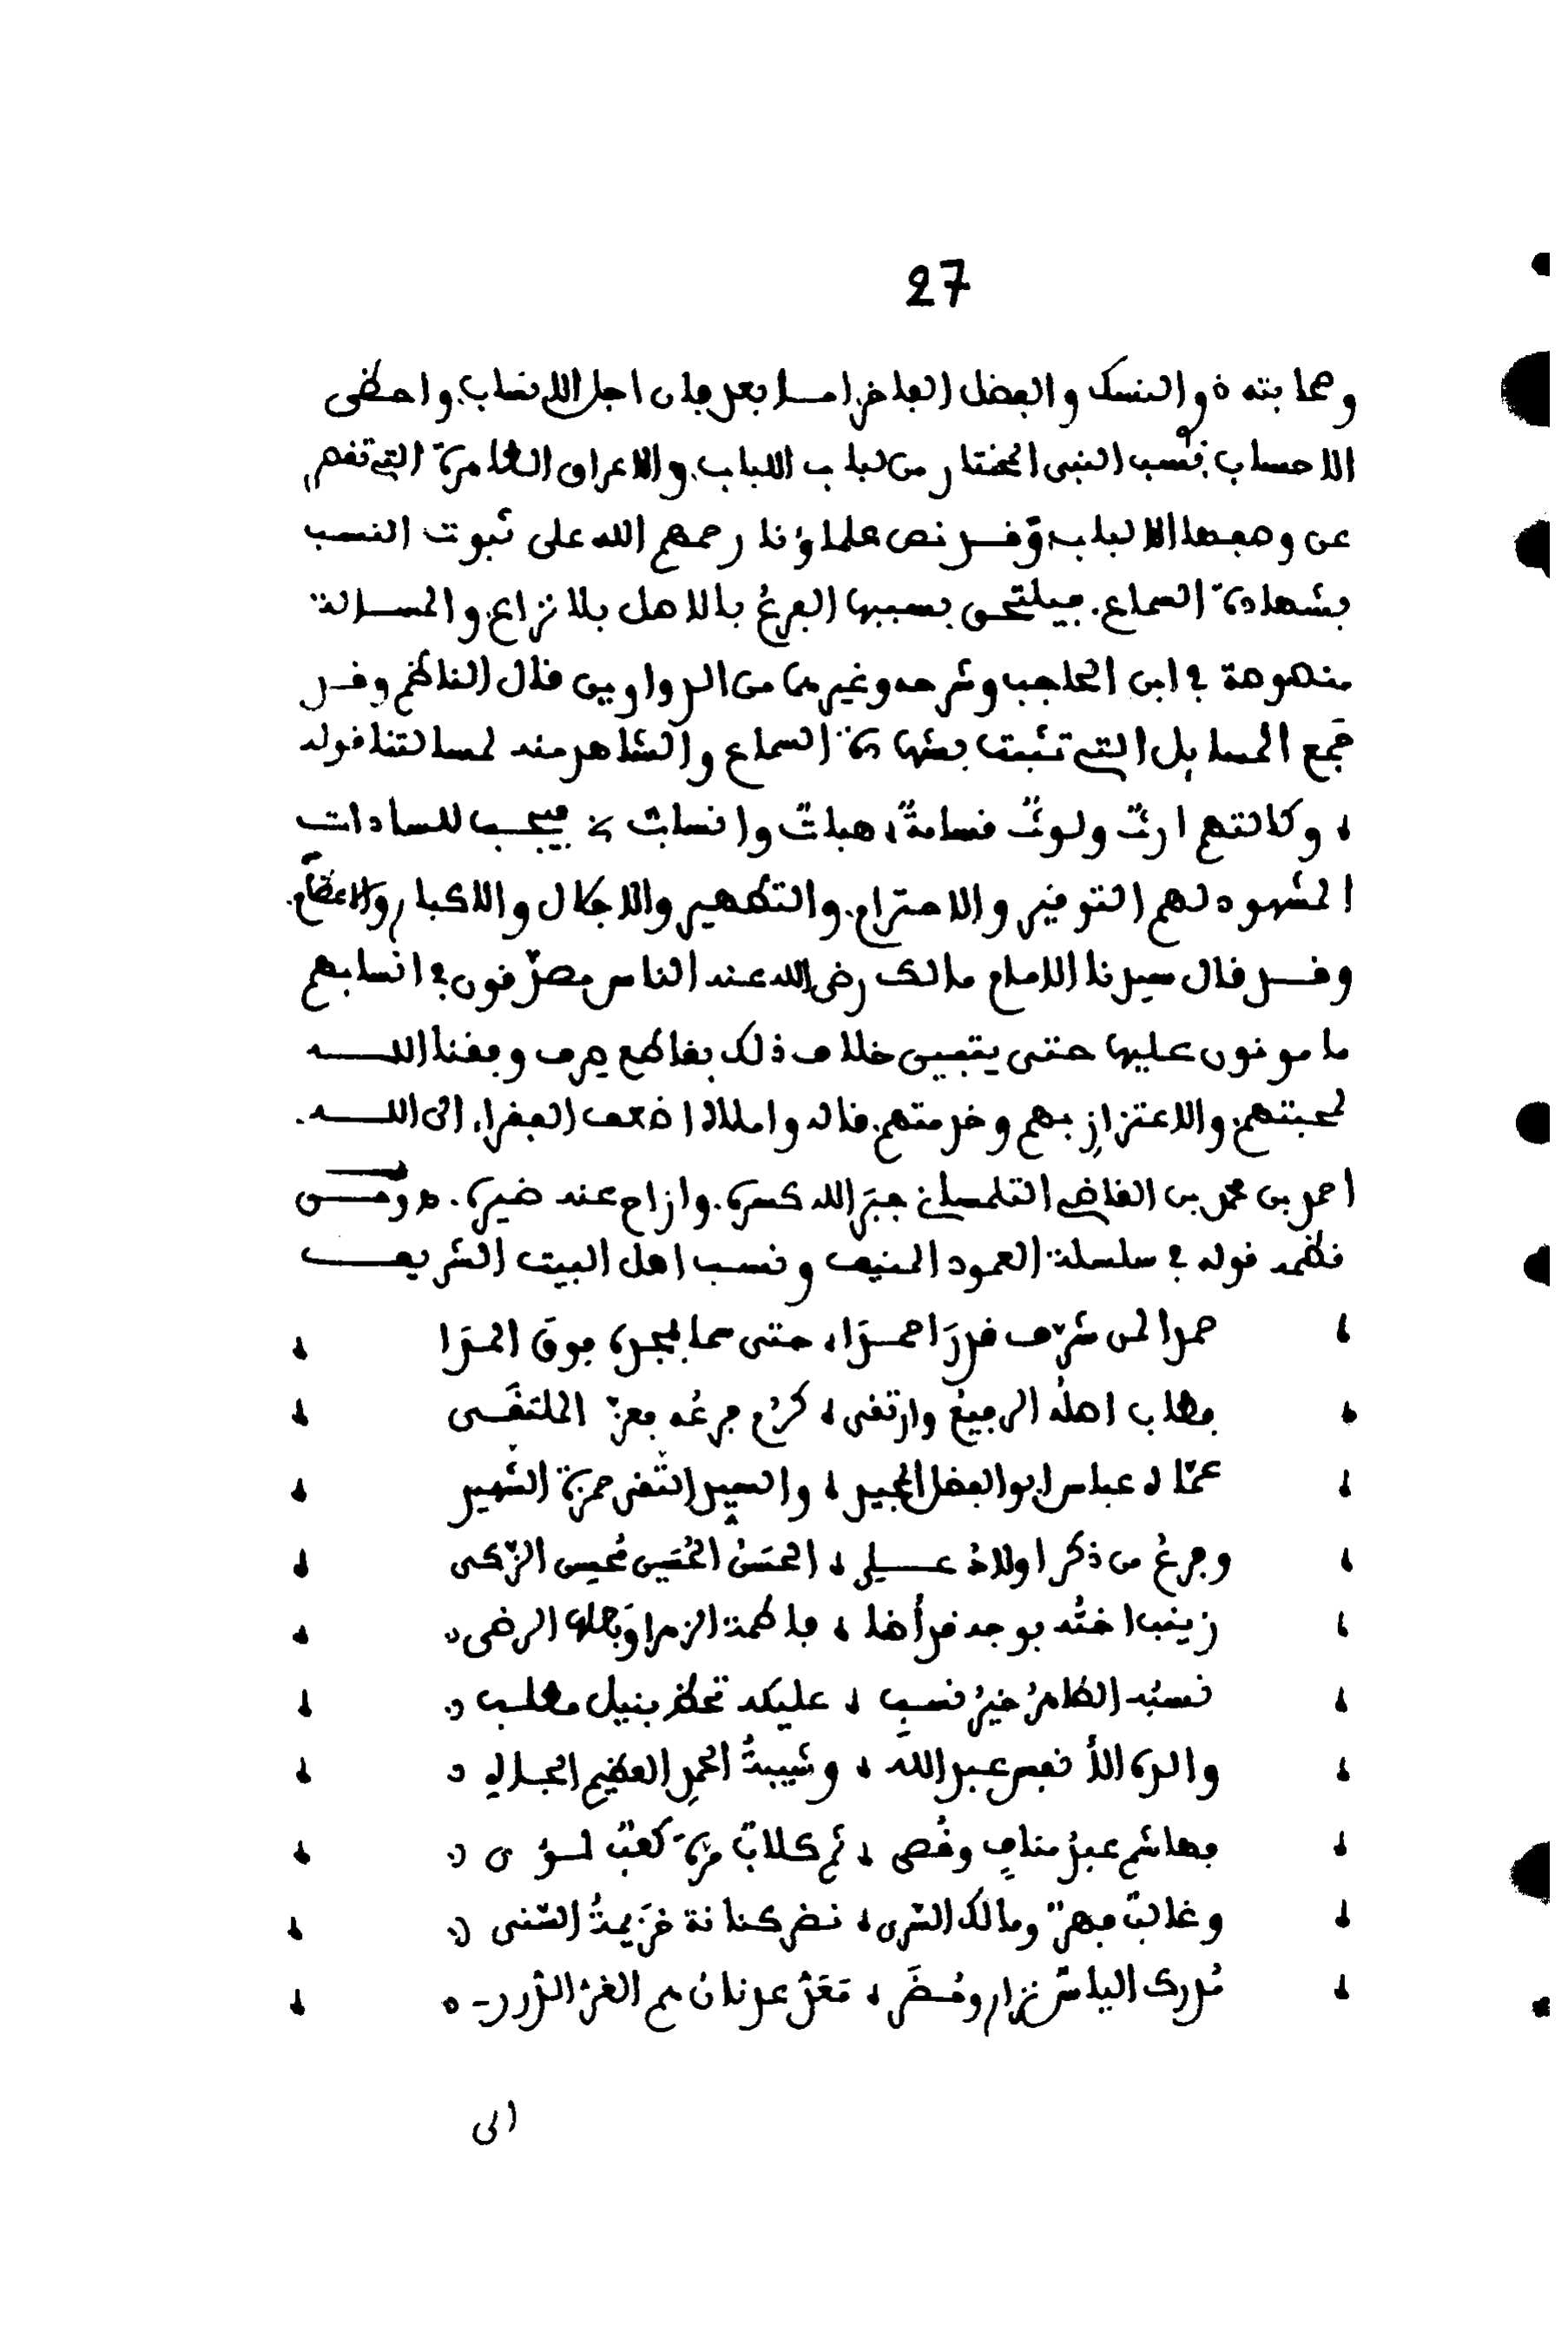 27
وصحابته ذو النسك والفضل الفاخر اما بعد فان اجل الانصاب واحظى
الاحساب نسب النبى المختار من لباب اللباب والاعراق الطاهرة التي تقصر
عن وصفها الالباب وقد نص علماؤنا رحمهم الله على ثبوت النسب
بشهادة السماع. فيلتحق بسببها الفرع بالاصل بلا نزاع. والمسالة
منصوصة في ابن الحاجب وشرحه وغيرها من الدواوين قال الناظم وقد
جمع المسايل التي تثبت بشهادة السماع والشاهد منه لمسالتنا قوله
وكانتهم ارث ولوث قسامة، هبات وانساب فيجب للسادات
المشهود لهم التوقير والاحترام. والتطهير والاجلال والاكبار والاعظام.
وقد قال سيدنا الامام مالك رضى الله عنه الناس مصدّقون في انسابهم
مامونون عليها حتى يتبين خلاف ذلك بقاطع يعرف وفقنا اللـــه
لمحبتهم والاعتزاز بهم وخدمتهم. قاله واملاه اضعف الفقراء الى اللـــه.
احمد بن محمد بن القاضي التلمساني جبر الله كسره. وازاح عنه ضيره. ومـــن
نظمه قوله في سلسلة العمود المنيف ونسب اهل البيت الشريف
حمدا لمن شرّف قدر احمدا، حتى سما بمجده فوق المدا
فطاب اصله الرفيع وارتقى، كرم فرعه بعزّ الملتقى
عمّاه عباس ابو الفضل المجيد، والسيد التقى حمزة الشهيد
وفرع من ذكر اولاد عـــلي، الحسن الحسين محسن الزّكى
زينب اخته بوجه قد أضا، فاطمة الزهرا وبعلها الرضى
نسبه الطاهر خير نسب، عليكه تحظ بنيل مطلب
والده الأنفس عبد الله، وشيبة الحمد العظيم الجاه
فهاشم عبد مناف وقصى، ثم كلاب مرة كعب لـــؤى
وغالب فهر ومالك السّرى، نضر كنانة خزيمة السّنى
مدركة الياس نزار ومضر، معدّ عدنان هم الغرّ الدّرر
الى